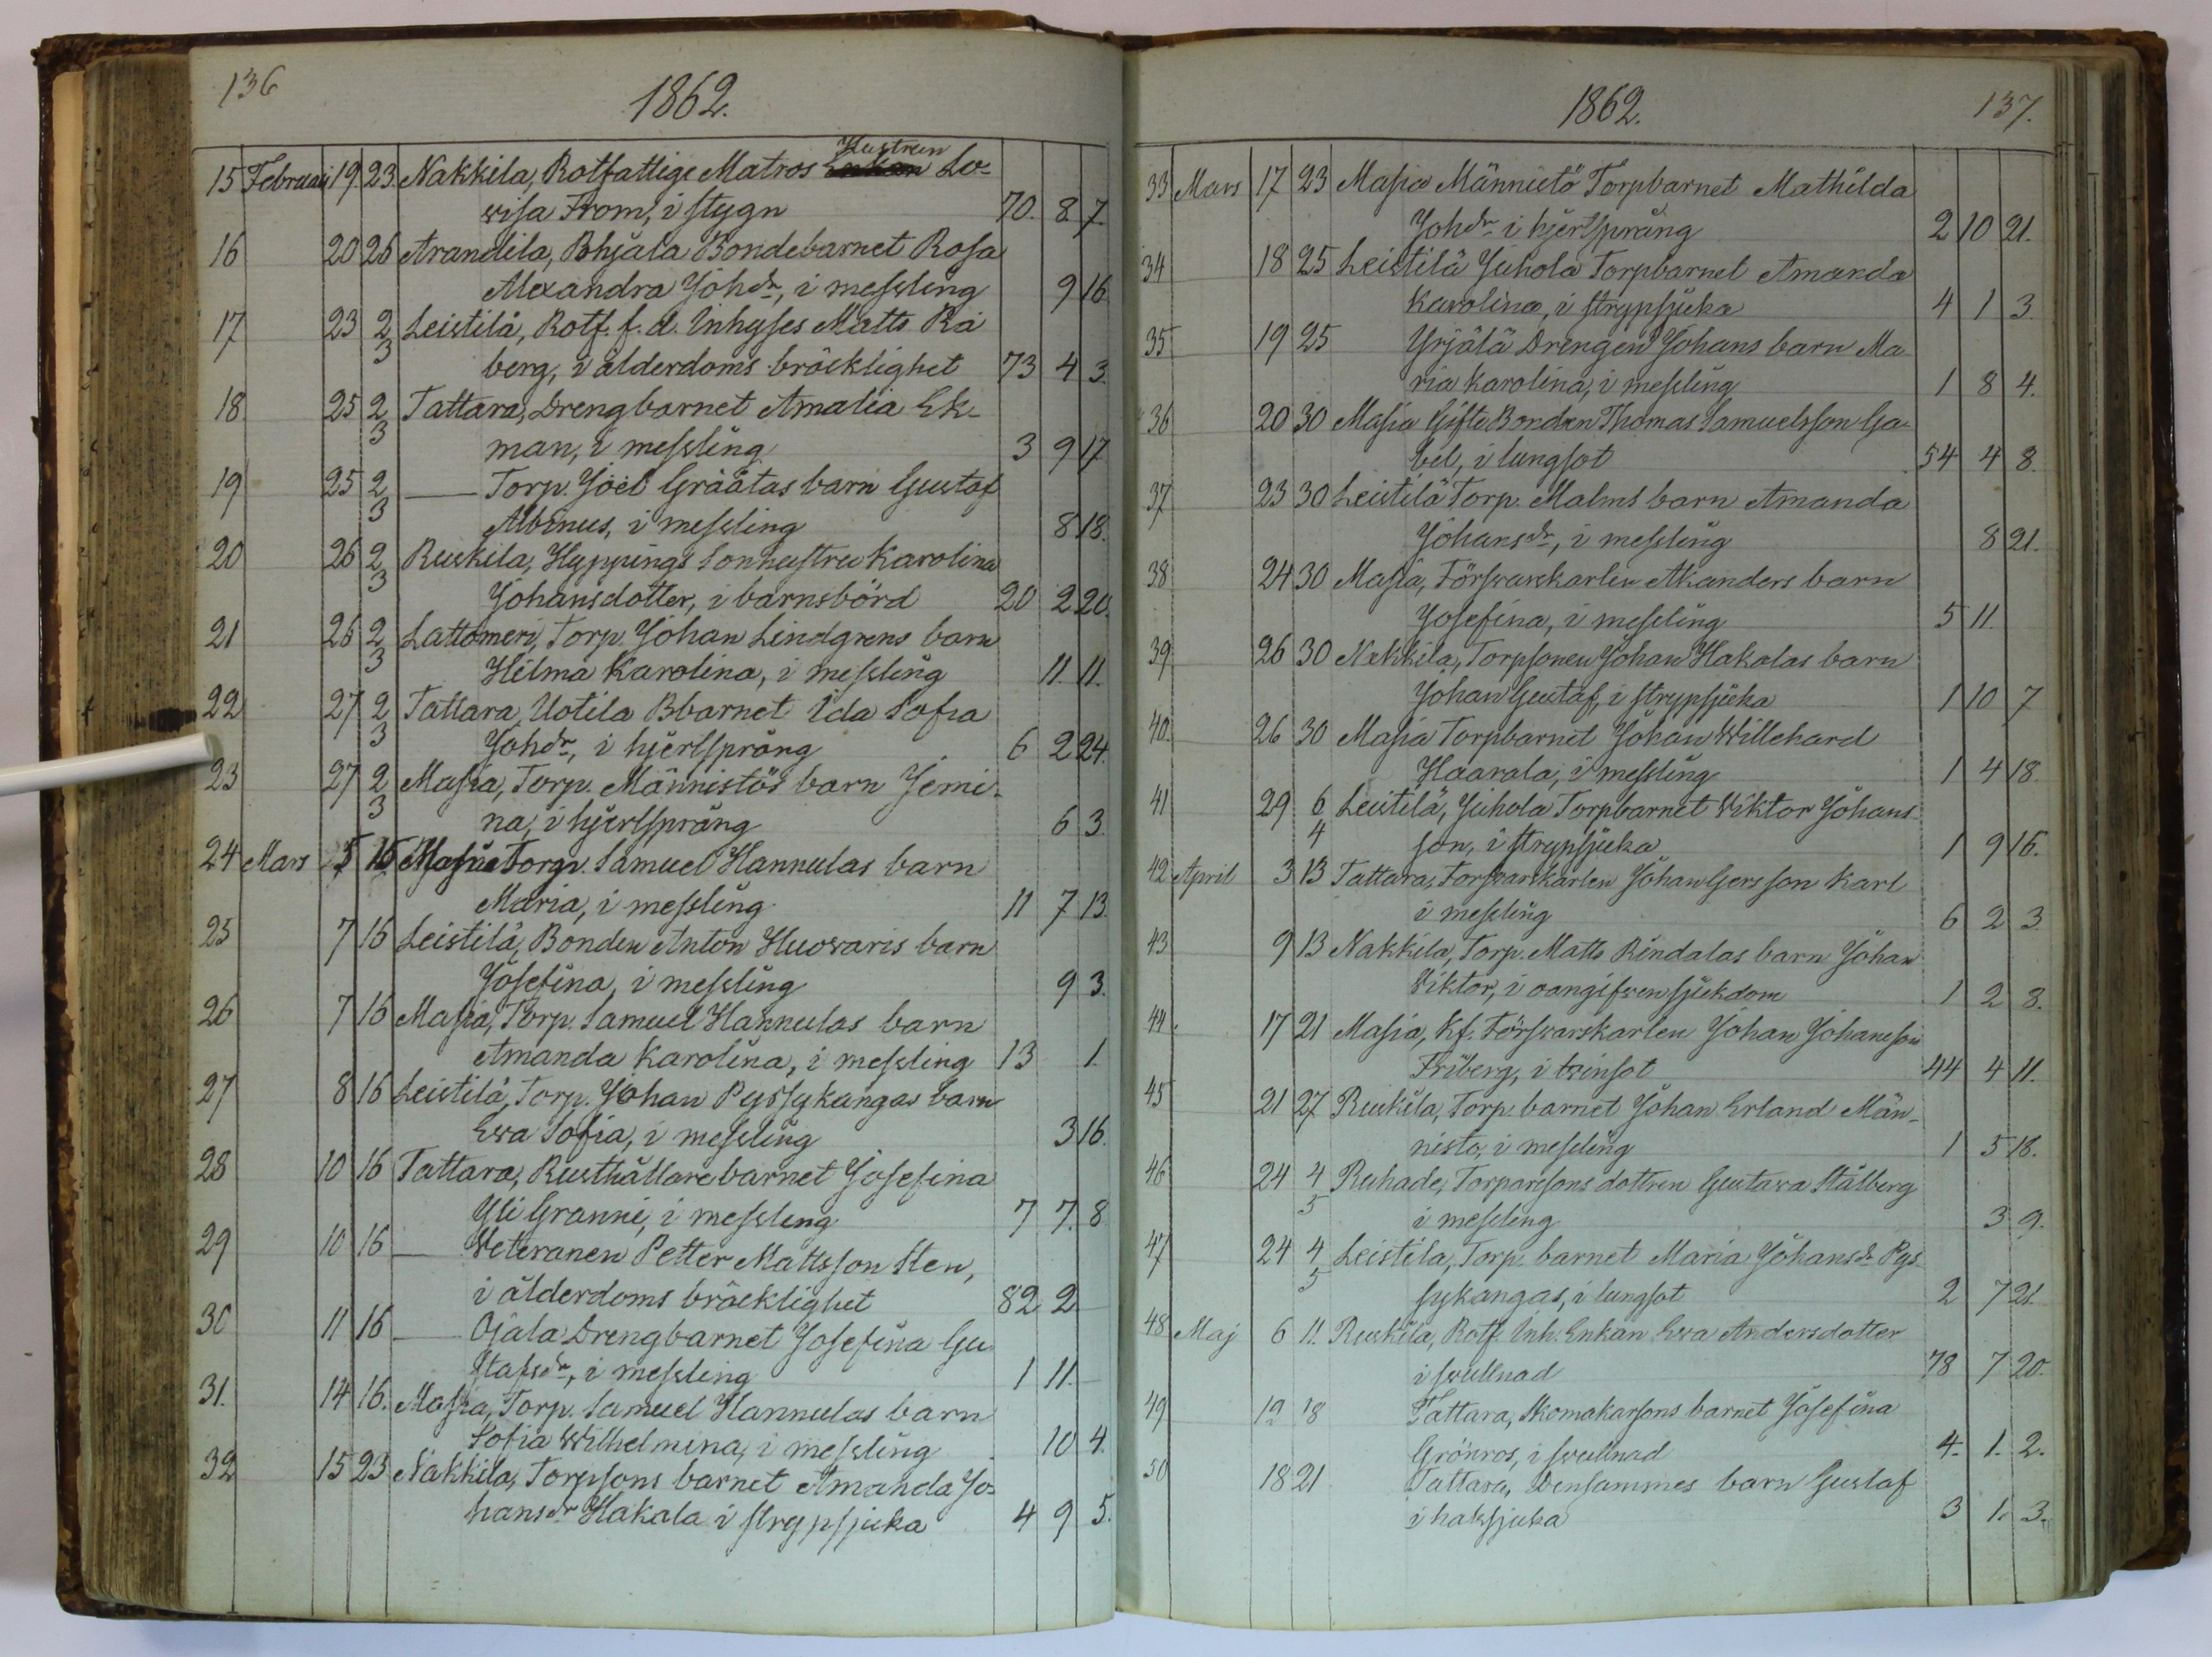 136
1862.
Hustrun
15 Februari 19 23. Nakkila, Rotfattige Matros Enkan Lo-
visa From, i stygn 70. 8. 7.
16 20 26 Arandila, Pohjala Bondebarnet Rosa
Alexandra Johdr, i messling 9 16
17 23 2/3 Leistilä, Rotf. f. d. Inhyses Matts Rå
berg, i ålderdoms bräcklighet 73 4 3.
18. 25 2/3 Tattara, Drengbarnet Amalia Ek-
man, i messling 3 9 17
19 25 2/3 — Torp. Joel Gräätas barn Gustaf
Albinus, i messling 8 18.
20 26 2/3 Ruskila, Hyppings Sonhustru Karolina
Johansdotter, i barnsbörd 20 2 20.
21 26 2/3 Lattomeri, Torp. Johan Lindgrens barn
Hilma Karolina, i messling 11. 11.
22 27 2/3 Tattara, Uotila Bbarnet Ida Sofia
Johdr, i hjertsprång 6 2 24.
23 27 2/3 Masia, Torp. Männistös barn Jemi-
na, i hjertsprång 6 3.
24 Mars 5 16 Masia Torp. Samuel Hannulas barn
Maria, i messling 11 7 13.
25 7 16 Leistilä, Bonden Anton Huovaris barn
Josefina, i messling 9 3.
26 7 16 Masia, Torp. Samuel Hannulas barn
Amanda Karolina, i messling 13 1.
27 8 16 Leistilä, Torp. Johan Pyssykangas barn
Ewa Sofia, i messling 3 16.
28 10 16 Tattara, Rusthållarebarnet Josefina
Yli Granni, i messling 7 7. 8
29 10 16 — Veteranen Petter Mattsson Sten,
i ålderdoms bräcklighet 82 2
30 11 16 — Ojala Drengbarnet Josefina Gu
stafsdr, i messling 1 11.
31. 14 16. Masia, Torp. Samuel Hannulas barn
Sofia Wilhelmina, i messling 10 4.
32 15 23 Nakkila, Torpsons barnet Amanda Jo-
hansdr Hakala i strypsjuka 4 9 5.
1862.
137.
33 Mars 17 23 Masia Männistö Torpbarnet Mathilda
Johdr i hjertsprång 2 10 21.
34 18 25 Leistilä Juhola Torpbarnet Amanda
Karolina, i strypsjuka 4 1 3.
35 19 25 Yrjälä Drengen Johans barn Ma
ria Karolina, i messling 1 8 4.
36 20 30 Masia Gifte Bonden Thomas Samuelsson Ga
bel, i lungsot 54 4 8.
37 23 30 Leistilä Torp. Malms barn Amanda
Johansdr, i messling 8 21.
38 24 30 Masia, Försvarskarlen Akanders barn
Josefina, i messling 5 11.
39 26 30 Nakkila, Torpsonen Johan Hakalas barn
Johan Gustaf, i strypsjuka 1 10 7
40. 26 30 Masia Torpbarnet Johan Willehard
Haarala, i messling 1 4 18.
41 29 6/4 Leistilä, Juhola Torpbarnet Viktor Johans
son, i strypsjuka 1 9 16.
42 April 3 13 Tattara, Försvarskarlen Johan Gers son Karl
i messling 6 2 3
43 9 13 Nakkila, Torp. Matts Rindalas barn Johan
Viktor, i oangifven sjukdom 1 2 8.
44. 17 21 Masia, Kf. Försvarskarlen Johan Johansson
Friberg, i tvinsot 44 4 11.
45 21 27 Ruskila, Torp. barnet Johan Erland Män-
nistö, i messling 1 5 18.
46 24 4/5 Ruhade, Torparesons dottren Gustava Stålberg
i messling 3 9.
47 24 4/5 Leistila, Torp. barnet Maria Johansdr Pys
sykangas, i lungsot 2 7 21.
48 Maj 6 11. Ruskila, Rotf. Inh. Enkan Ewa Andersdotter
i svullnad 78 7 20.
49 12 18 Tattara, Skomakarsons barnet Josefina
Grönros, i svullnad 4. 1. 2.
50 18 21 Tattara, Densammes barn Gustaf
i halssjuka 3 1. 3.